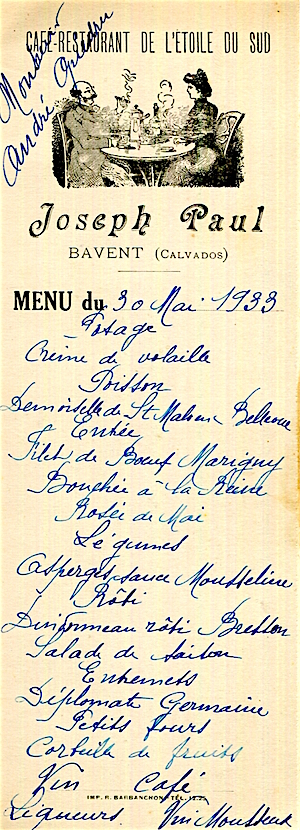 Monsieur
André
CAFÉ-RESTAURANT DE L'ÉTOILE DU SUD
Joseph Paul
BAVENT (CALVADOS)
MENU du 30 Mai 1933
Potage
Crème de volaille
Poisson
Demoiselle de St Malo Bellevue
Entrée
Filet de Bœuf Marigny
Bouchée à la Reine
Rosée de Mai
Légumes
Asperges sauce Mousseline
Rôti
Dindonneau rôti Bresson
Salade de saison
Entremets
Diplomate Germaine
Petits fours
Corbeille de fruits
Vin Café
IMP. R. BARBANCHON TÉL. 12.22
Liqueurs Vin Mousseux